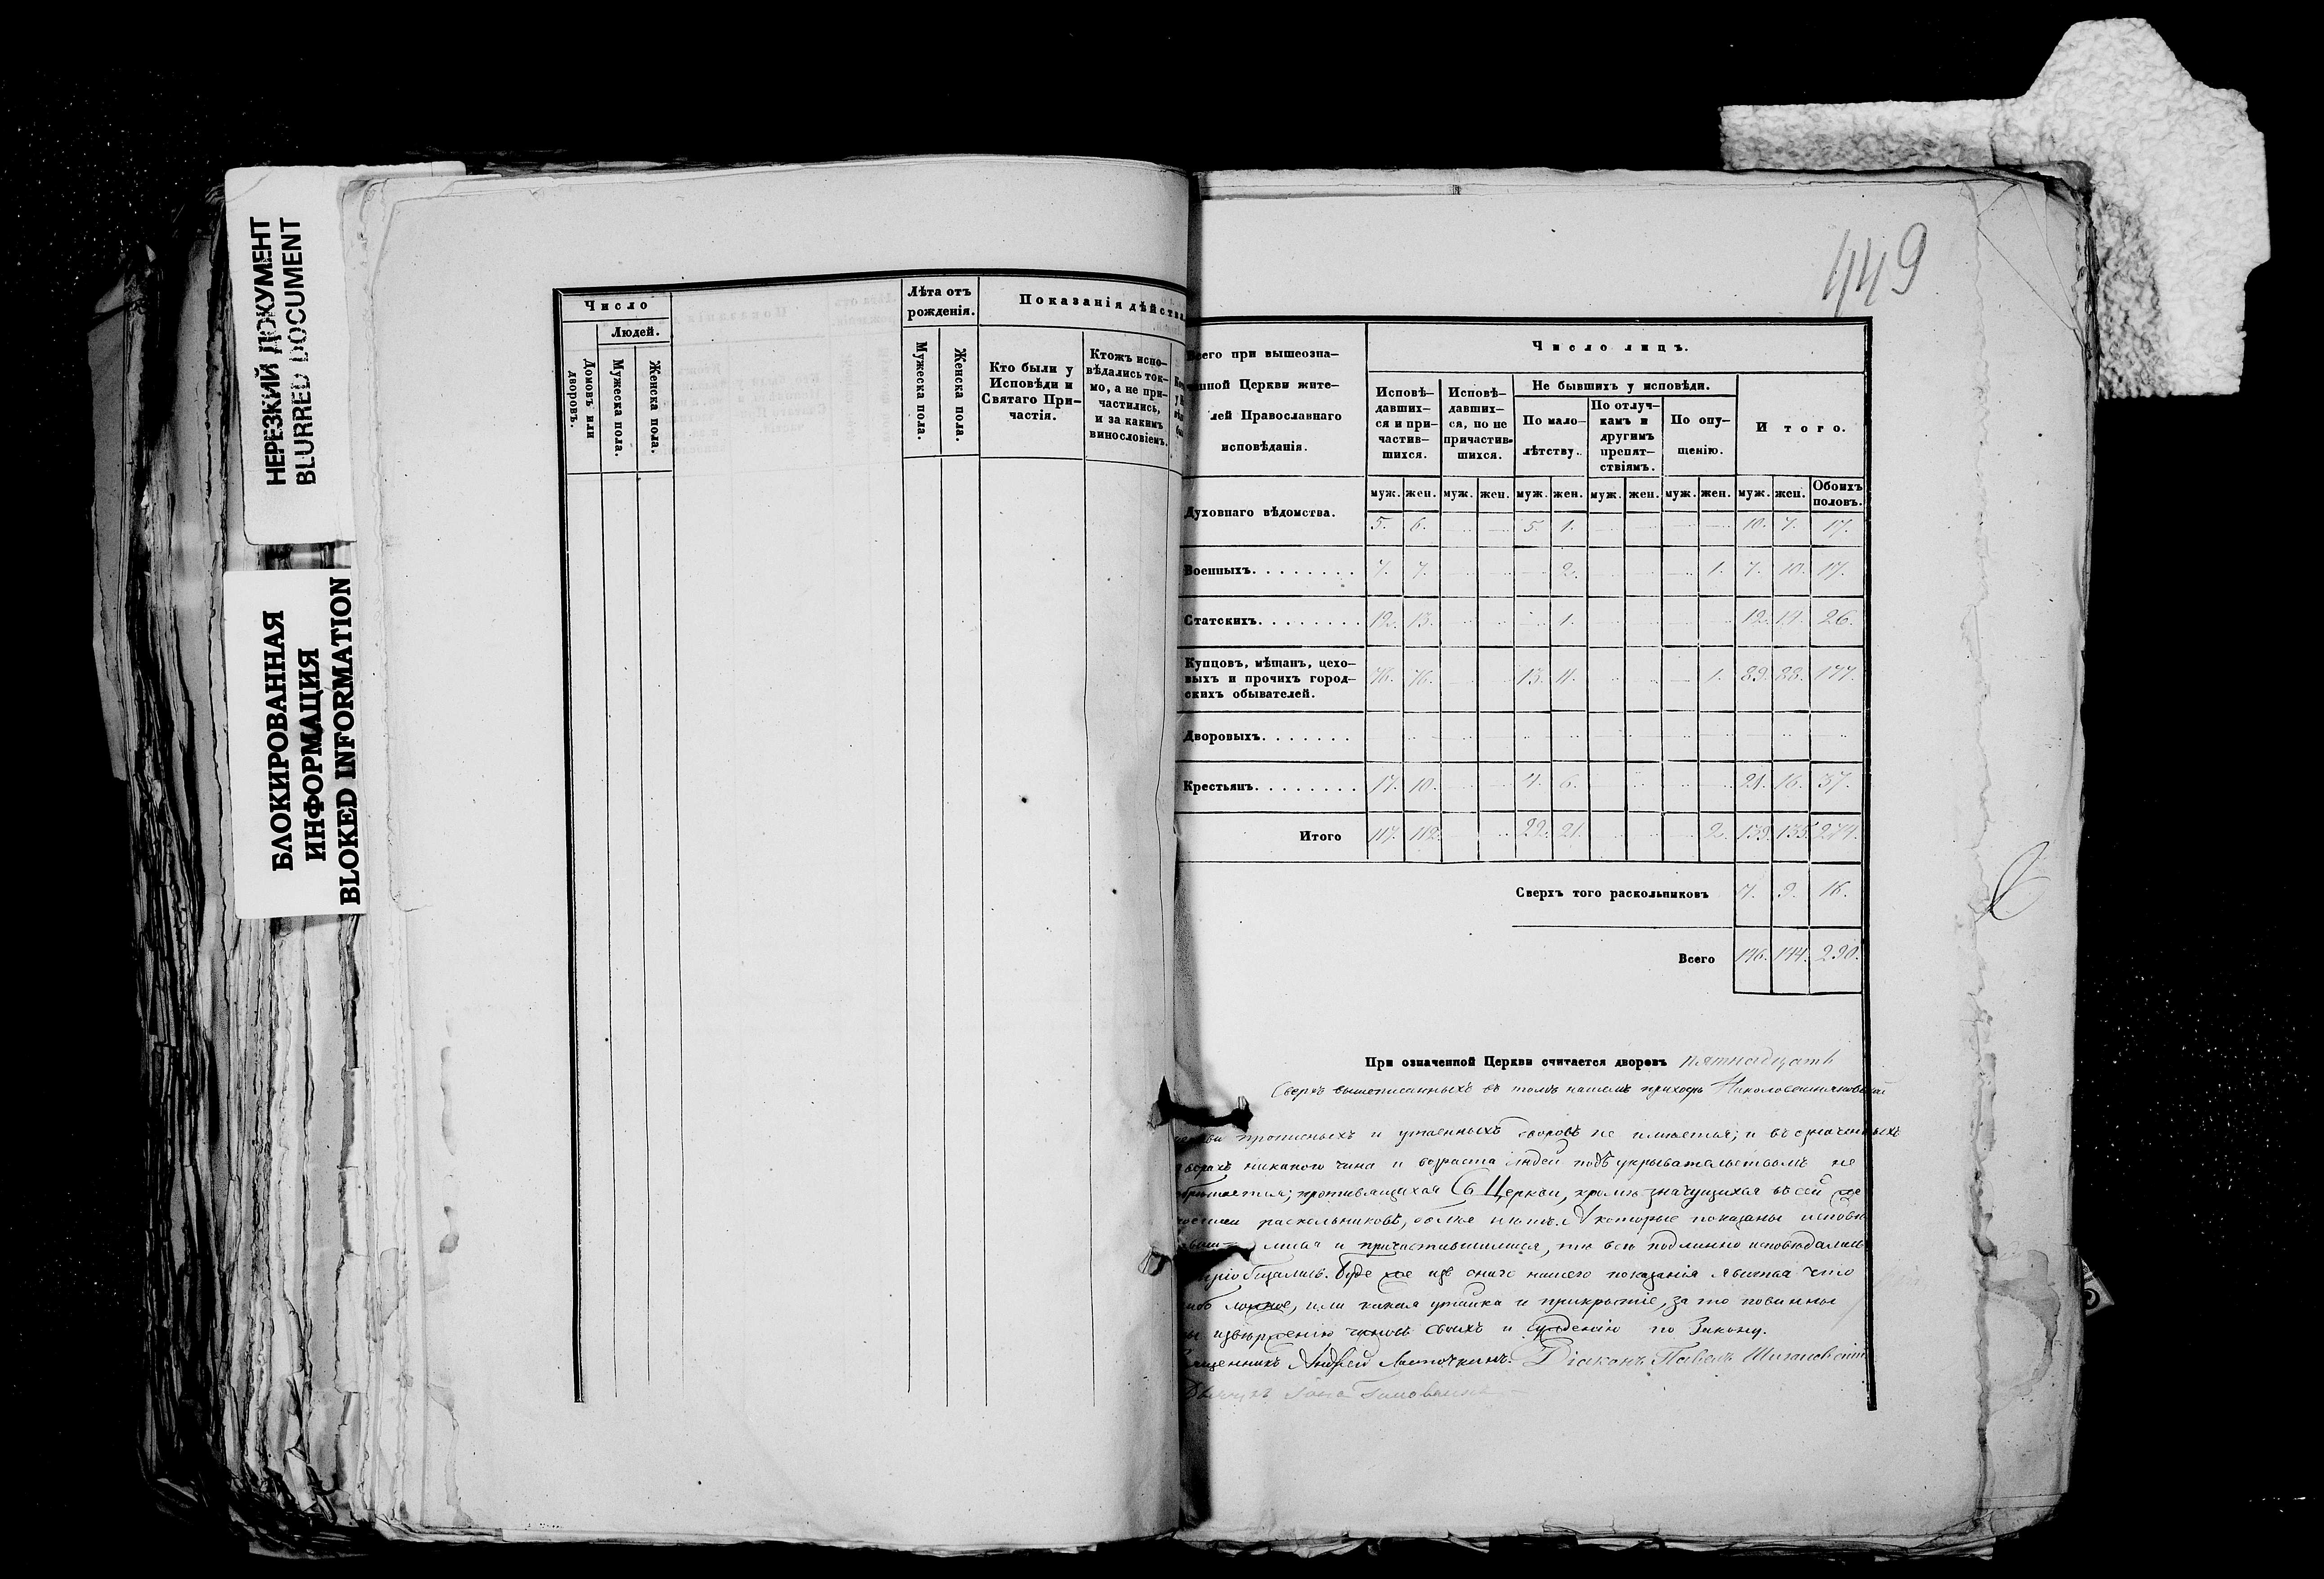 НЕРЕЗКИЙ ДОКУМЕНТ
BLURRED DOCUMENT
БЛОКИРОВАННАЯ
ИНФОРМАЦИЯ
BLOKED INFORMATION
Число
Людей.
Домовъ или дворовъ.
Мужеска пола.
Женска пола.
Лѣта отъ
рожденія.
Мужеска пола.
Женска пола.
Показанія дѣйства
Кто были у
Исповѣди и
Святаго При-
частія.
Ктожъ испо-
вѣдались ток-
мо, а не при-
частились,
и за какимъ
винословіемъ.
449
Всего при вышеозна-
ченной Церкви жите-
лей Православнаго
исповѣданія.
Число лицъ.
Исповѣ-
давших-
ся и при-
частив-
шихся.
Исповѣ-
давших-
ся, но не
причастив-
шихся.
Не бывшихъ у исповѣди.
По мало-
лѣтству.
По отлуч-
камъ и
другимъ
препят-
ствіямъ.
По опу-
щенію.
Итого.
муж. жен. муж. жен. муж. жен. муж. жен. муж. жен. муж. жен. Обоихъ половъ.
Духовнаго вѣдомства. 5. 6. 5. 1. 10. 7. 17.
Военныхъ. 7. 7. 2. 1. 7. 10. 17.
Статскихъ. 12. 13. 1. 12. 14. 26.
Купцовъ, мѣщанъ, цехо-
выхъ и прочихъ город-
скихъ обывателей. 76. 76. 13. 11. 1. 89. 88. 177.
Дворовыхъ.
Крестьянъ. 17. 10. 4. 6. 21. 16. 37.
Итого 117. 112. 22. 21. 2. 139. 135. 274.
Сверхъ того раскольниковъ 7. 9. 16.
Всего 146. 144. 290.
При означенной Церкви считается дворовъ пятнадцать
Сверхъ вышеписанныхъ въ томъ нашемъ приходѣ
прописныхъ и утаенныхъ дворовъ не имѣется; и въ означенныхъ
никакого чина и возраста людей подъ укрывательствомъ не
противящихся Св. Церкви, кромѣ значущихся въ сей
раскольниковъ, болѣе нѣтъ. А которые показаны исповѣ
и причастившимися, тѣ всѣ подлинно исповѣдались
пріобщались. Буде же изъ сего нашего показанія явится что
ложное, или какая утайка и прикрытіе, за то повинны
изверженію чиновъ своихъ и сужденію по Закону.
Священникъ Андрей Ласточкинъ. Діаконъ Павелъ